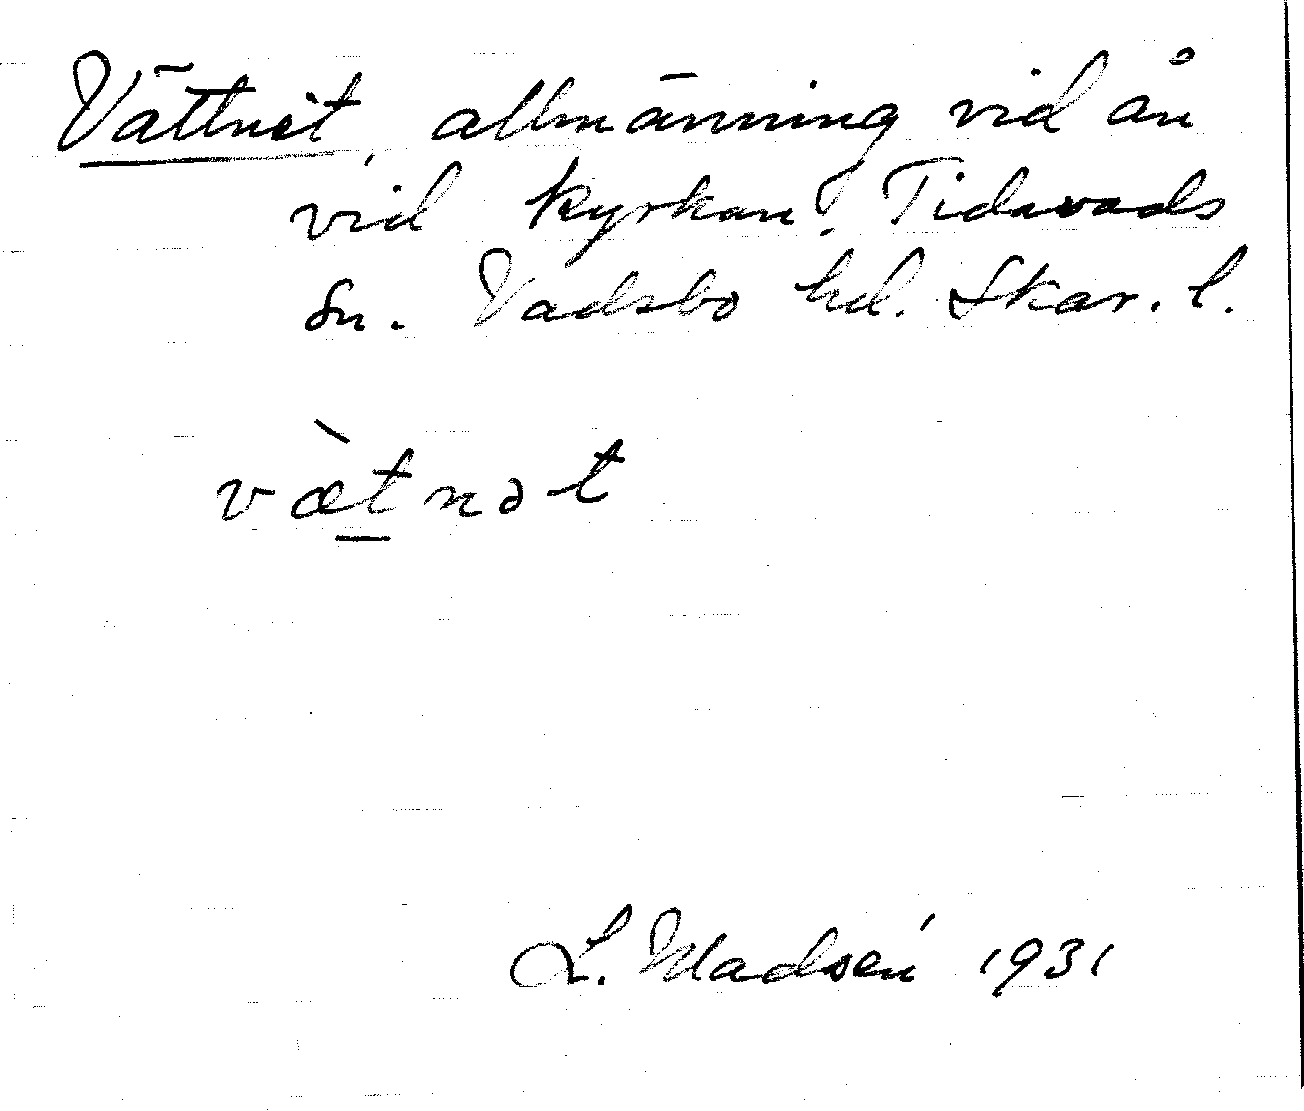 Vättnet, allmänning vid ån
vid kyrkan, Tidavads
sn. Vadsbo hd. Skar. l.
væ̀tnət
L. Madsén 1931